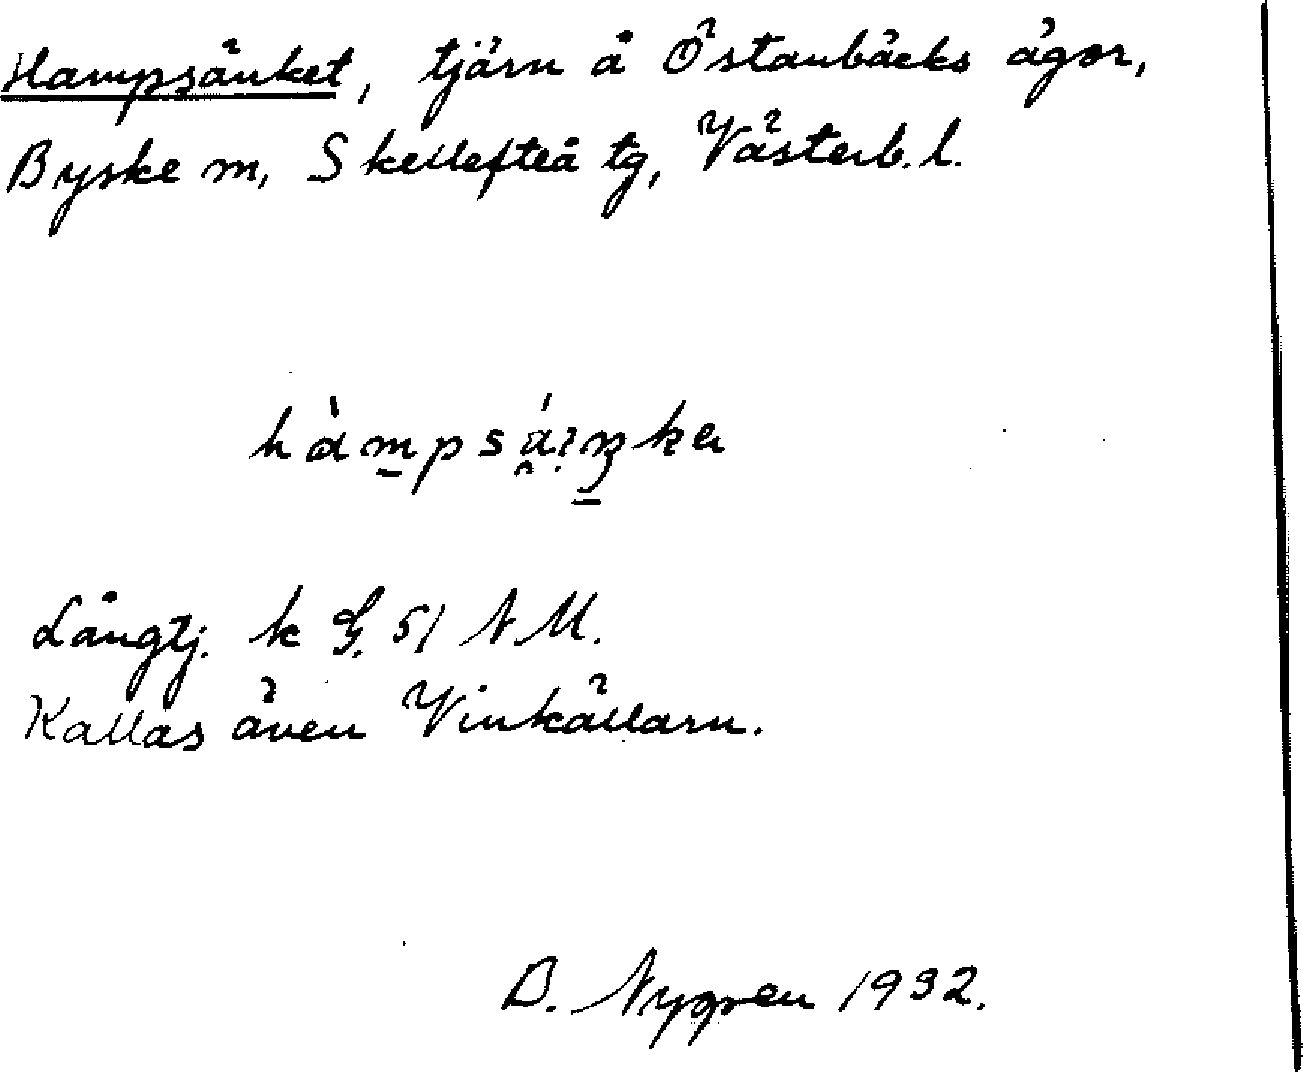 Hampsänket, tjärn å Östanbäcks ägor,
Byske sn, Skellefteå tg, Västerb. l.
Långtj. k G. 51 NM.
Kallas även Vinkällarn.
B. Nygren 1932.